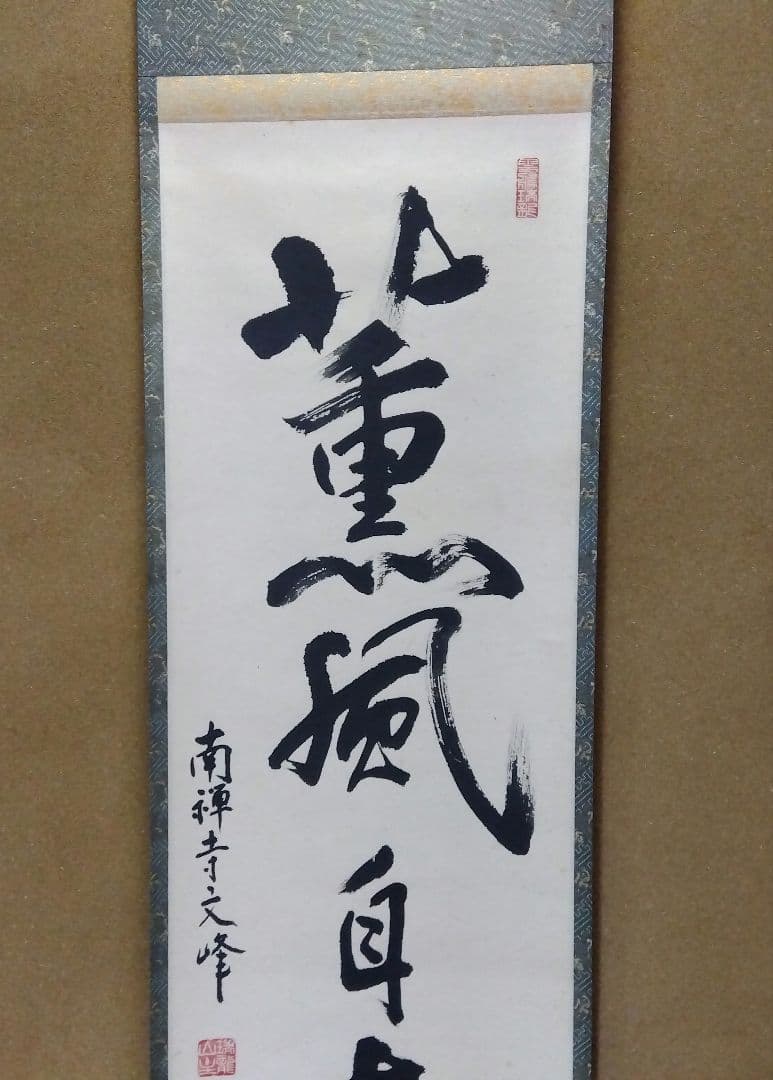 薫風自
南禅寺文峰